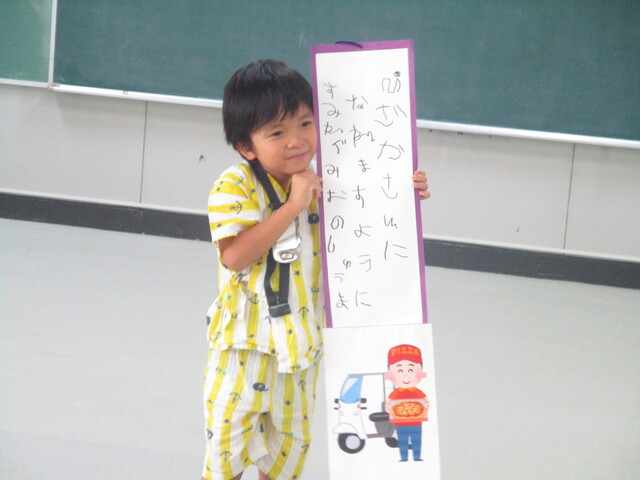 ぴざやさんに
なれますように
すみれぐみおのしゅうま
PIZZA